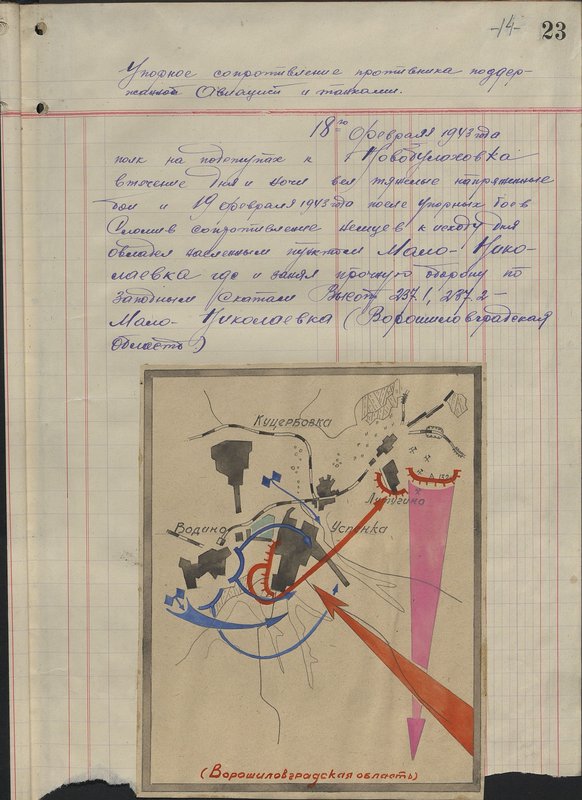 -14- 23
Упорное сопротивление противника поддер-
жанной Авиацией и танками.
18го февраля 1943 года
полк на подступах к Новобулаховка
втечение дня и ночи вел тяжелые напряженные
бои и 19 февраля 1943 года после упорных боев
Сломив сопротивление немцев к исходу дня
овладел населенным пунктом Мало-Нико-
лаевка где и занял прочную оборону по
Западным скатам Высот 237.1, 287.2 –
Мало-Николаевка (Ворошиловградская
область)
Куцербовка
Лутугино
Водино Успенка
(Ворошиловградская область)